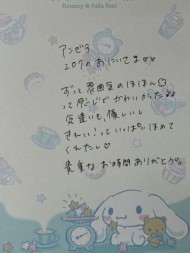 fluffy & fulls fun!
アンビラ
207のおにいさま♡♡
ずっと雰囲気のほほん
って感じでかわいかった
気遣いも、優しい
きれい!っていっぱいほめて
くれたし♡
貴重なお時間ありがとう